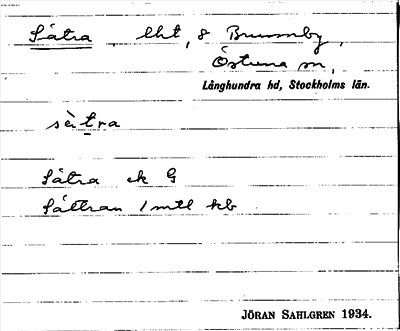 Sätra lht, 8 Brunnby,
Östuna sn,
Långhundra hd, Stockholms län.
sètra
Sätra ek G
Sättran 1 mtl kb
JÖRAN SAHLGREN 1934.